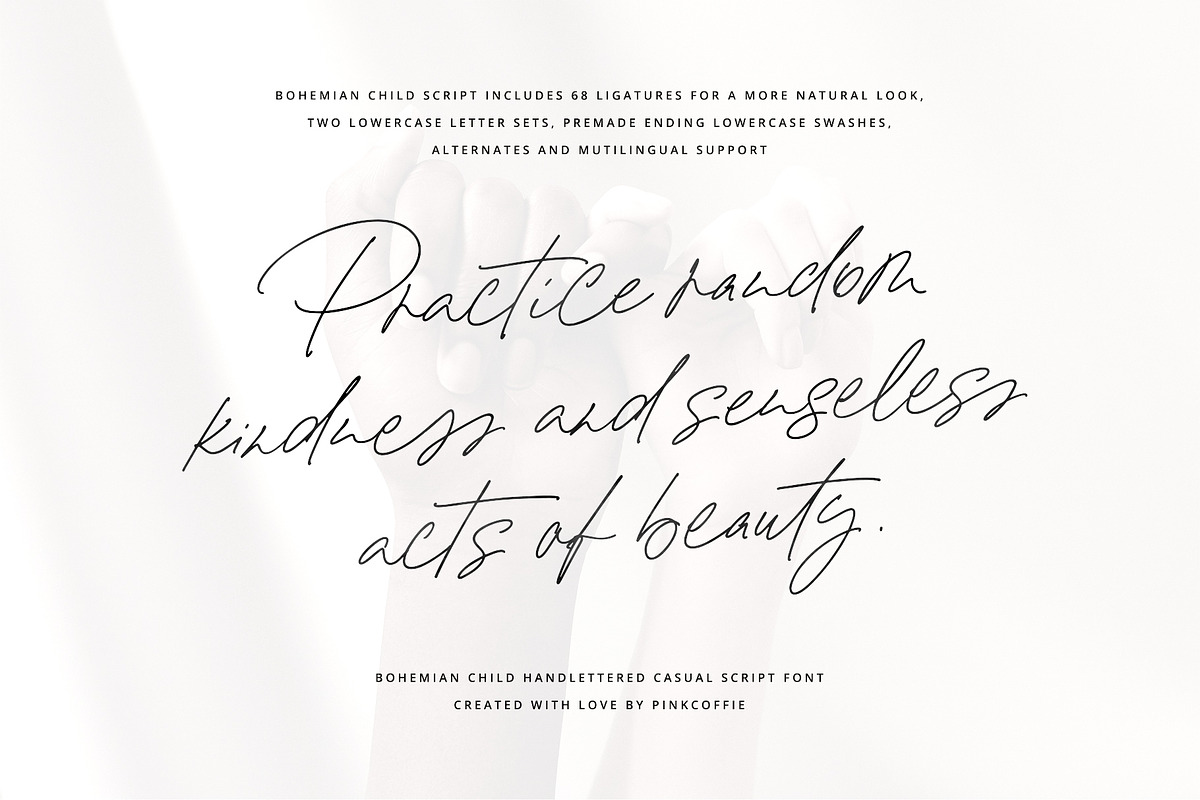 BOHEMIAN CHILD SCRIPT INCLUDES 68 LIGATURES FOR A MORE NATURAL LOOK,
TWO LOWERCASE LETTER SETS, PREMADE ENDING LOWERCASE SWASHES,
ALTERNATES AND MUTILINGUAL SUPPORT
Practice random
kindness and senseless
acts of beauty.
BOHEMIAN CHILD HANDLETTERED CASUAL SCRIPT FONT
CREATED WITH LOVE BY PINKCOFFIE